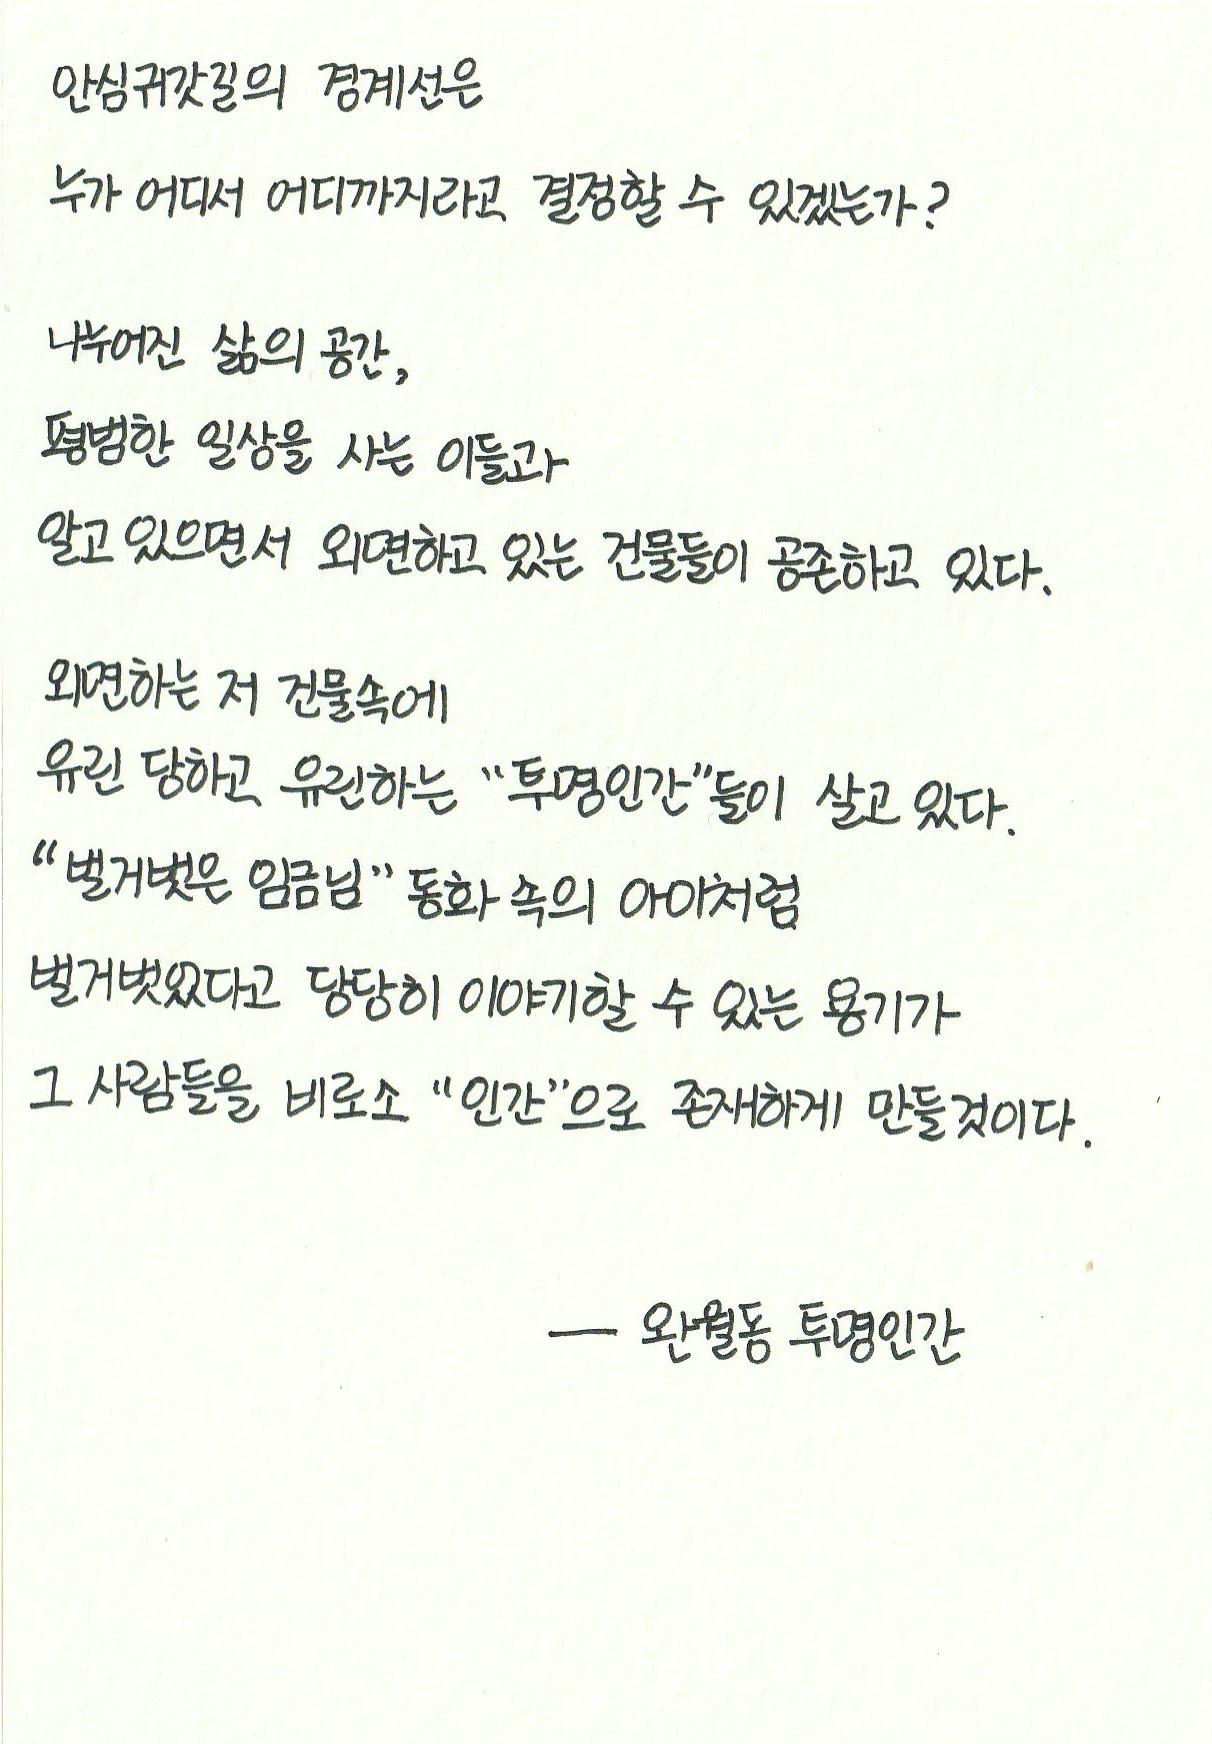 안심귀갓길의 경계선은
누가 어디서 어디까지라고 결정할 수 있겠는가?
나누어진 삶의 공간,
평범한 일상을 사는 이들과
알고 있으면서 외면하고 있는 건물들이 공존하고 있다.
외면하는 저 건물속에
유린 당하고 유린하는 “투명인간”들이 살고 있다.
“벌거벗은 임금님” 동화 속의 아이처럼
벌거벗었다고 당당히 이야기할 수 있는 용기가
그 사람들을 비로소 “인간”으로 존재하게 만들것이다.
— 완월동 투명인간